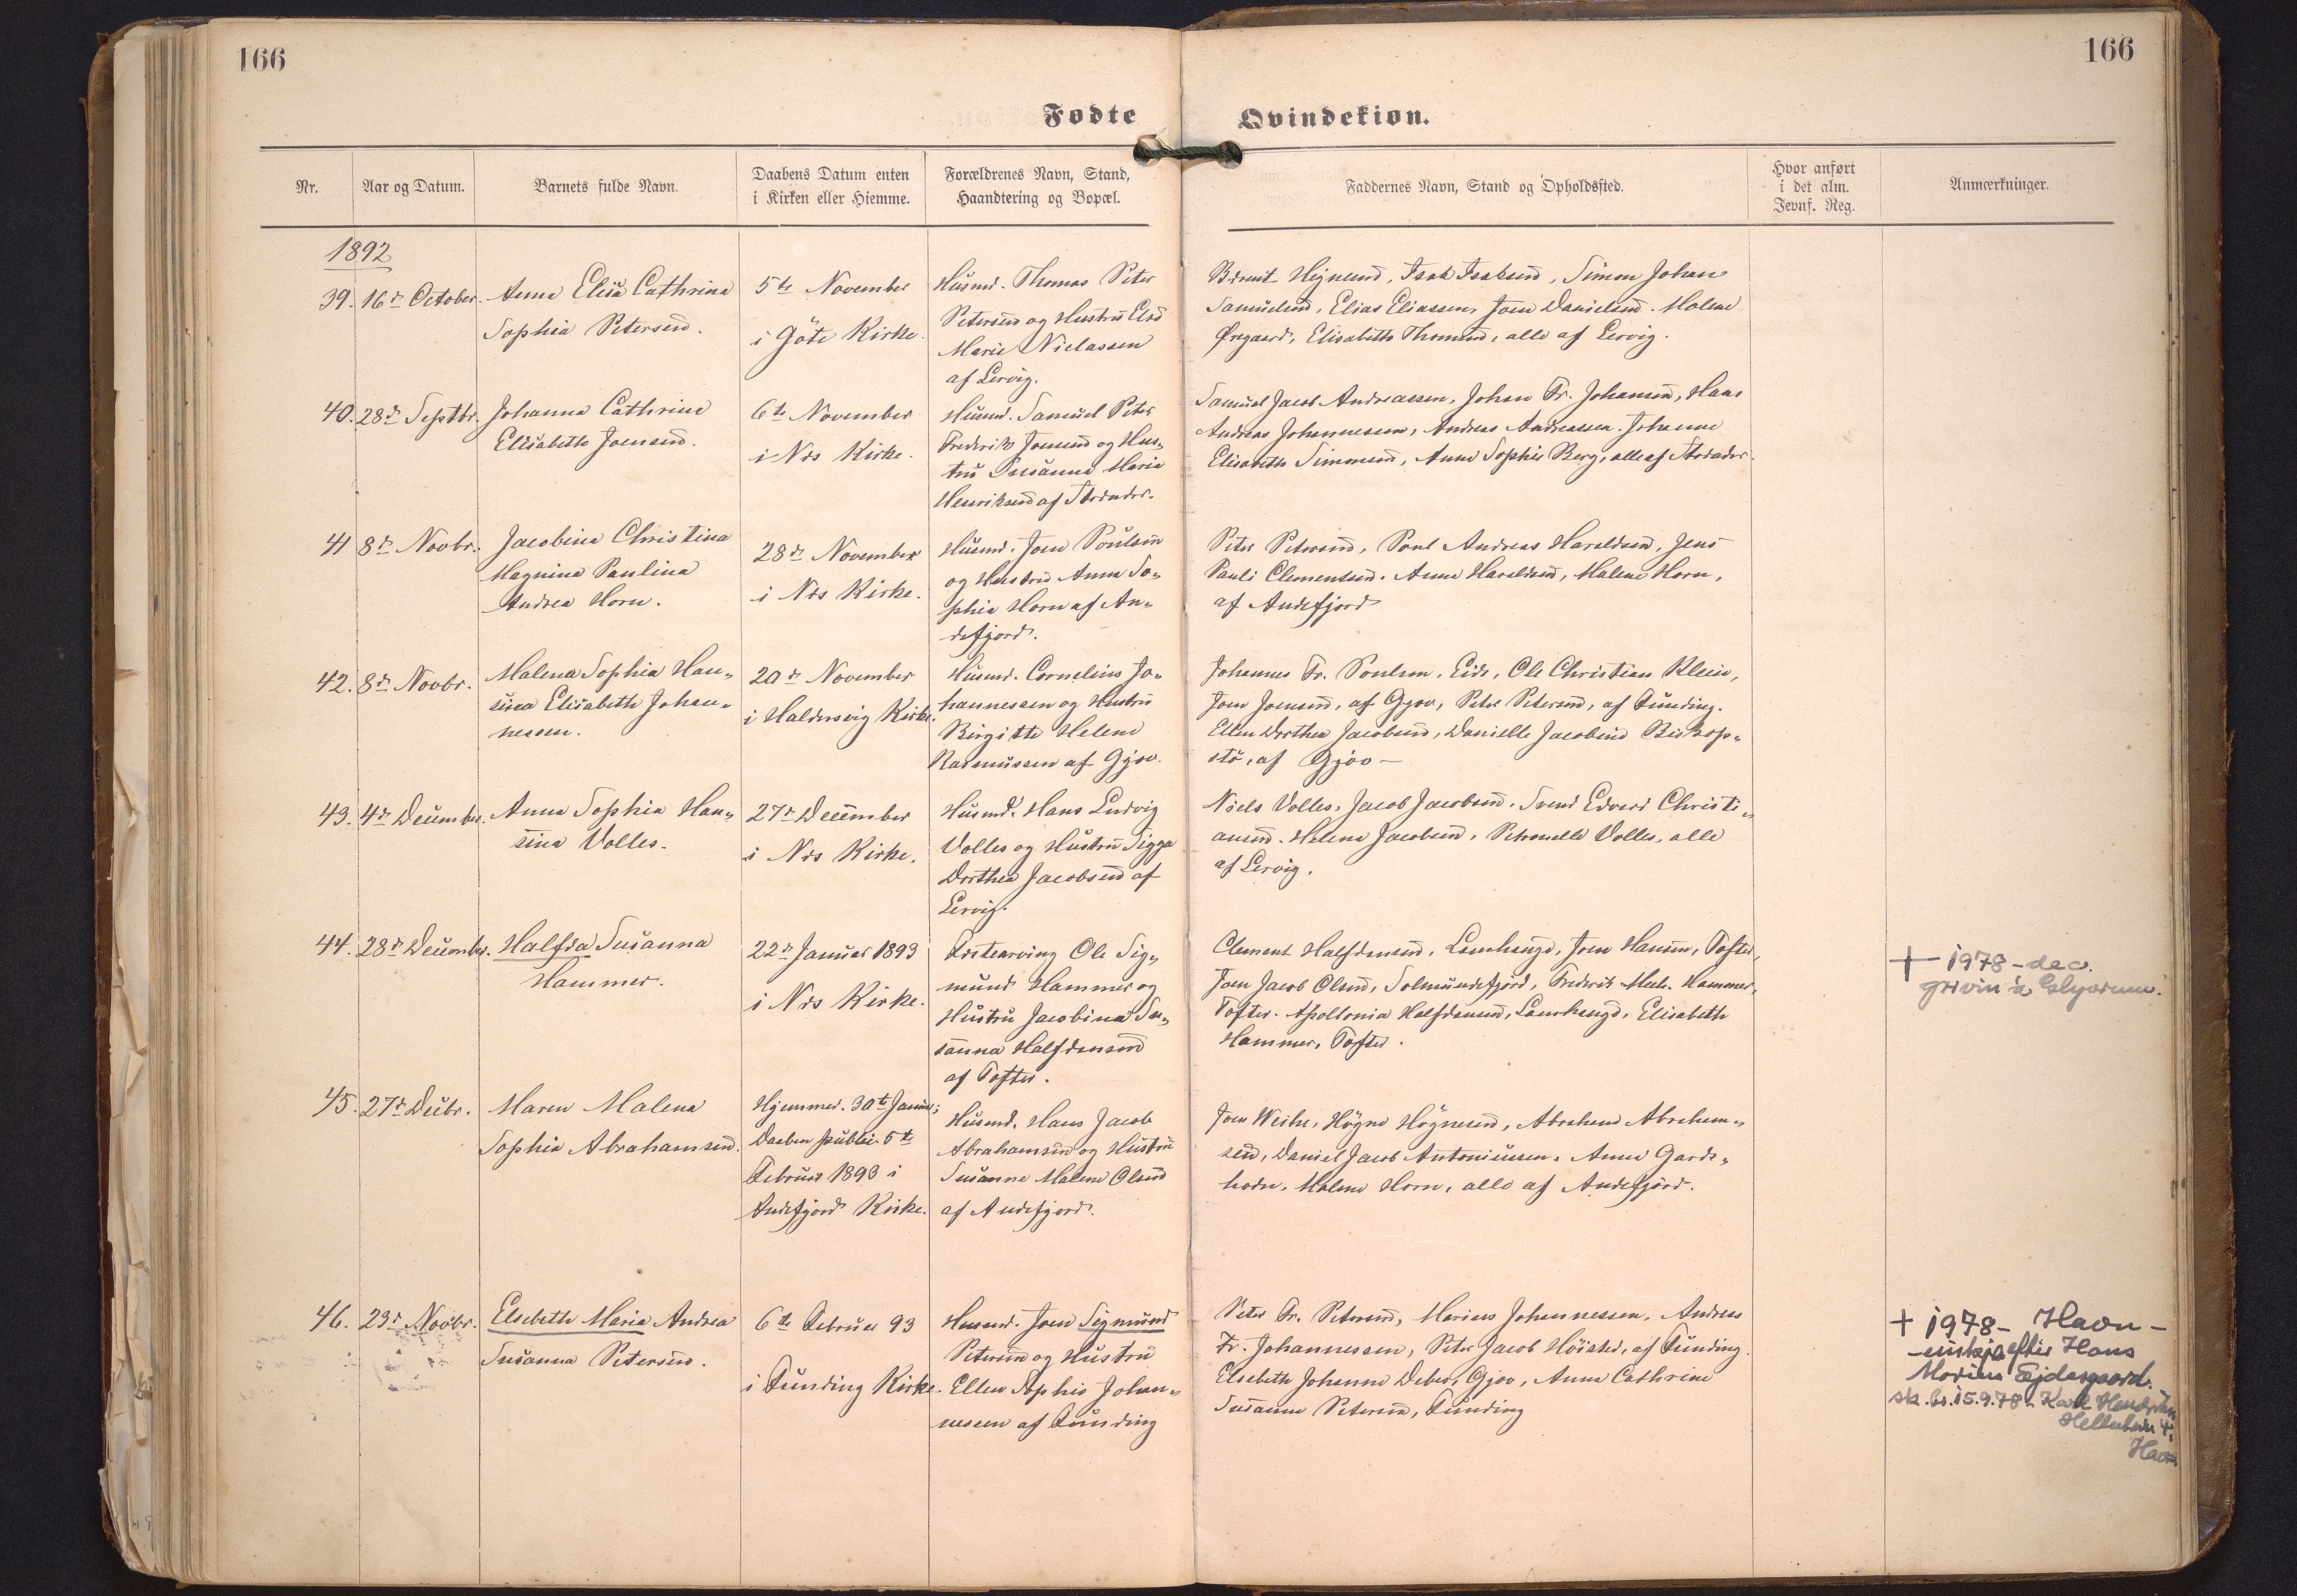 166
166
Fødte
Qvindekiøn.
Nr.
Aar og Datum.
Barnets fulde Navn.
Daabens Datum enten
i Kirken eller Hiemme.
Forældrenes Navn, Stand,
Haandtering og Bopæl.
Faddernes Navn, Stand og Opholdssted.
Hvor anført
i det alm.
Jevnf. Reg.
Anmærkninger.
1892
39. 16de October.
Anna Elisa Cathrina
Sophia Petersen.
5te November
i Göte Kirke.
Husmd. Thomas Peter
Petersen og Hustru Else
Marie Niclassen
af Lervig.
Heynesen, Isak Isaksen, Simon Johan
Samuelsen, Elias Eliassen, Joen Danielsen. Malene
Øregaard, Elisabeth Thomsen, alle af Lervig.
40. 28de Septbr.
Johanna Cathrine
Elisabeth Joensen.
6te November
i Nds Kirke.
Husmd. Samuel Peter
Frederik Joensen og Hus-
tru Susanne Marie
Henriksen af
Samuel Jacob Andreassen, Johan Fr. Johansen, Hans
Andreas Johannessen, Andreas Andreassen. Johanne
Elisabeth Simonsen, Anne Sophie Berg, alle af
41 8de Novbr.
Jacobina Christina
Magnina Paulina
Andrea Horn.
28de November
i Nds Kirke.
Husmd. Joen Poulsen
og Hustru Anna So-
phia Horn af An-
defjord.
Peter Petersen, Poul Andreas Haraldsen, Jens
Pauli Clementsen. Anne Haraldsen, Malene Horn,
af Andefjord
42. 8de Novbr.
Malena Sophia Han-
sina Elisabeth Johan-
nessen.
20de November
i Haldersvig Kirke.
Husmd. Cornelius Jo-
hannessen og Hustru
Birgitte Helene
Rasmussen af Gjov.
Johannes Fr. Poulsen, Eide, Ole Christian Klein,
Joen Joensen, af Gjov, Peter Petersen, af Funding.
Ellen Dorthea Jacobsen, Danielle Jacobine Biskop-
stö, af Gjov –
43. 4de December.
Anna Sophia Han-
sina Volles.
27de December
i Nds Kirke.
Husmd. Hans Ludvig
Volles og Hustru Sigga
Dorthea Jacobsen af
Lervig.
Niels Volles, Jacob Jacobsen, Svend Edvard Christi-
ansen. Helene Jacobsen, Petronelle Volles, alle
af Lervig.
44. 28de December.
Halfda Susanna
Hammer.
22de Januar 1893
i Nds Kirke.
Ole Sig-
mund Hammer og
Hustru Jacobina Su-
sanna Halfdansen
af Tofter.
Clement Halfdansen, Lamhauge, Joen Hansen, Tofter,
Joen Jacob Olsen, Solmundefjord, Frederik Mich. Hammer,
Tofter. Apollonia Halfdansen, Lamhauge, Elisabeth
Hammer, Tofter.
+ 1978 - dec.
grivin á Glyvrum.
45. 27de Decbr.
Maren Malena
Sophia Abrahamsen.
Hjemmed. 30te Januar;
Daaben public. 5te
Februar 1893 i
Andefjord Kirke.
Husmd. Hans Jacob
Abrahamsen og Hustru
Susanne Malene Olsen
af Andefjord.
Joen Weihe, Högne Högnesen, Abraham Abraham-
sen, Daniel Jacob Antoniussen. Anna Gards-
horn, Malene Horn, alle af Andefjord.
46. 23de Novbr.
Elsebeth Maria Andrea
Susanna Petersen.
6te Februar 93
i Funding Kirke.
Husmd. Joen Sigmund
Petersen og Hustru
Ellen Sophie Johan-
nessen af Funding
Peter Fr. Petersen, Marius Johannessen, Andreas
Fr. Johannessen, Peter Jacob Höisted, af Funding.
Elsebeth Johanne Debes, Gjov, Anna Cathrine
Susanne Petersen, Funding
+ 1978 - Havn -
- einkja eftir Hans
Marius Ejdesgaard.
sk. br. 15.9.78 - Karl
4,
Havn